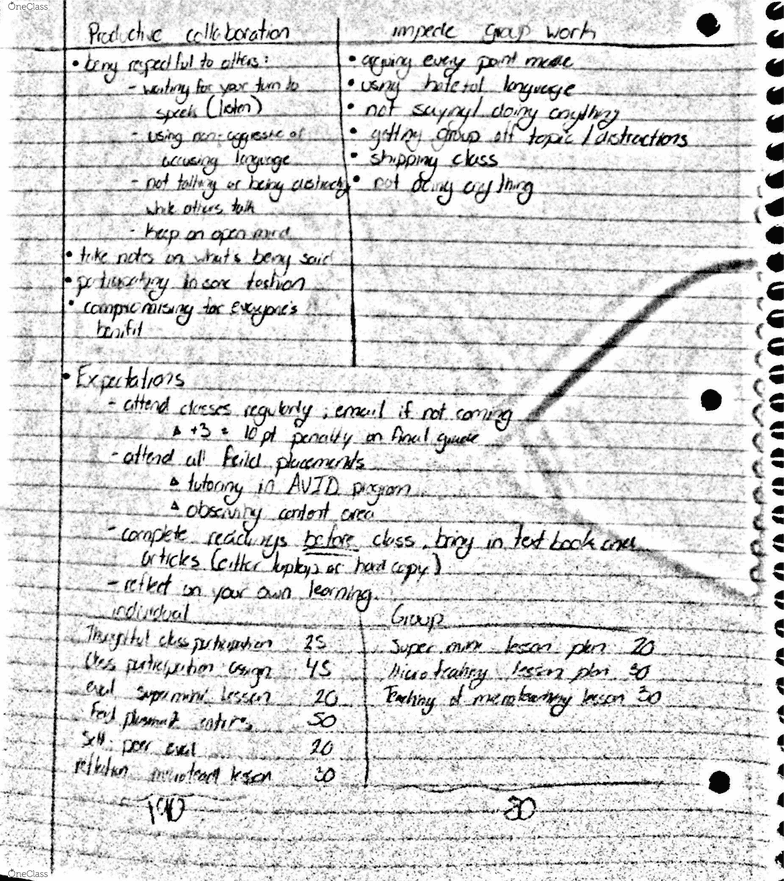 OneClass
Productive collaboration
• being respectful to others:
- waiting for your turn to
speak (listen)
- using non-aggressive or
accusing language
- not talking or being distracting
while others talk
- keep an open mind
• take notes on what's being said
• participating in some fashion
• compromising for everyone's
benifit
impede group work
• arguing every point made
• using hateful language
• not saying/doing anything
• getting group off topic/distractions
• skipping class
• not doing anything
• Expectations
- attend classes regularly; email if not coming
▵ +3 = 10 pt penalty on final grade
- attend all feild placements
▵ tutoring in AVID program
▵ observing content area
- complete readings before class, bring in text book and
articles (either laptop or hard copy)
- reflect on your own learning.
individual
Thoughtful class participation 25
Class participation assign 45
eval super mini lesson 20
50
self peer eval 20
reflection microteach lesson 30
190
Group
Super mini lesson plan 20
Microteaching lesson plan 30
Teaching of microteaching lesson 30
80
OneClass